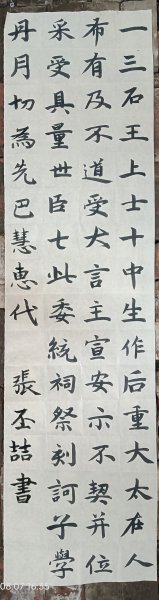 一三石王上士十中生作后重大太在人
布有及不道受犬言主宣安示不契并位
采受具量世臣七此委統祠祭刻訶子學
丹月切為先巴慧惠代 張丕喆書